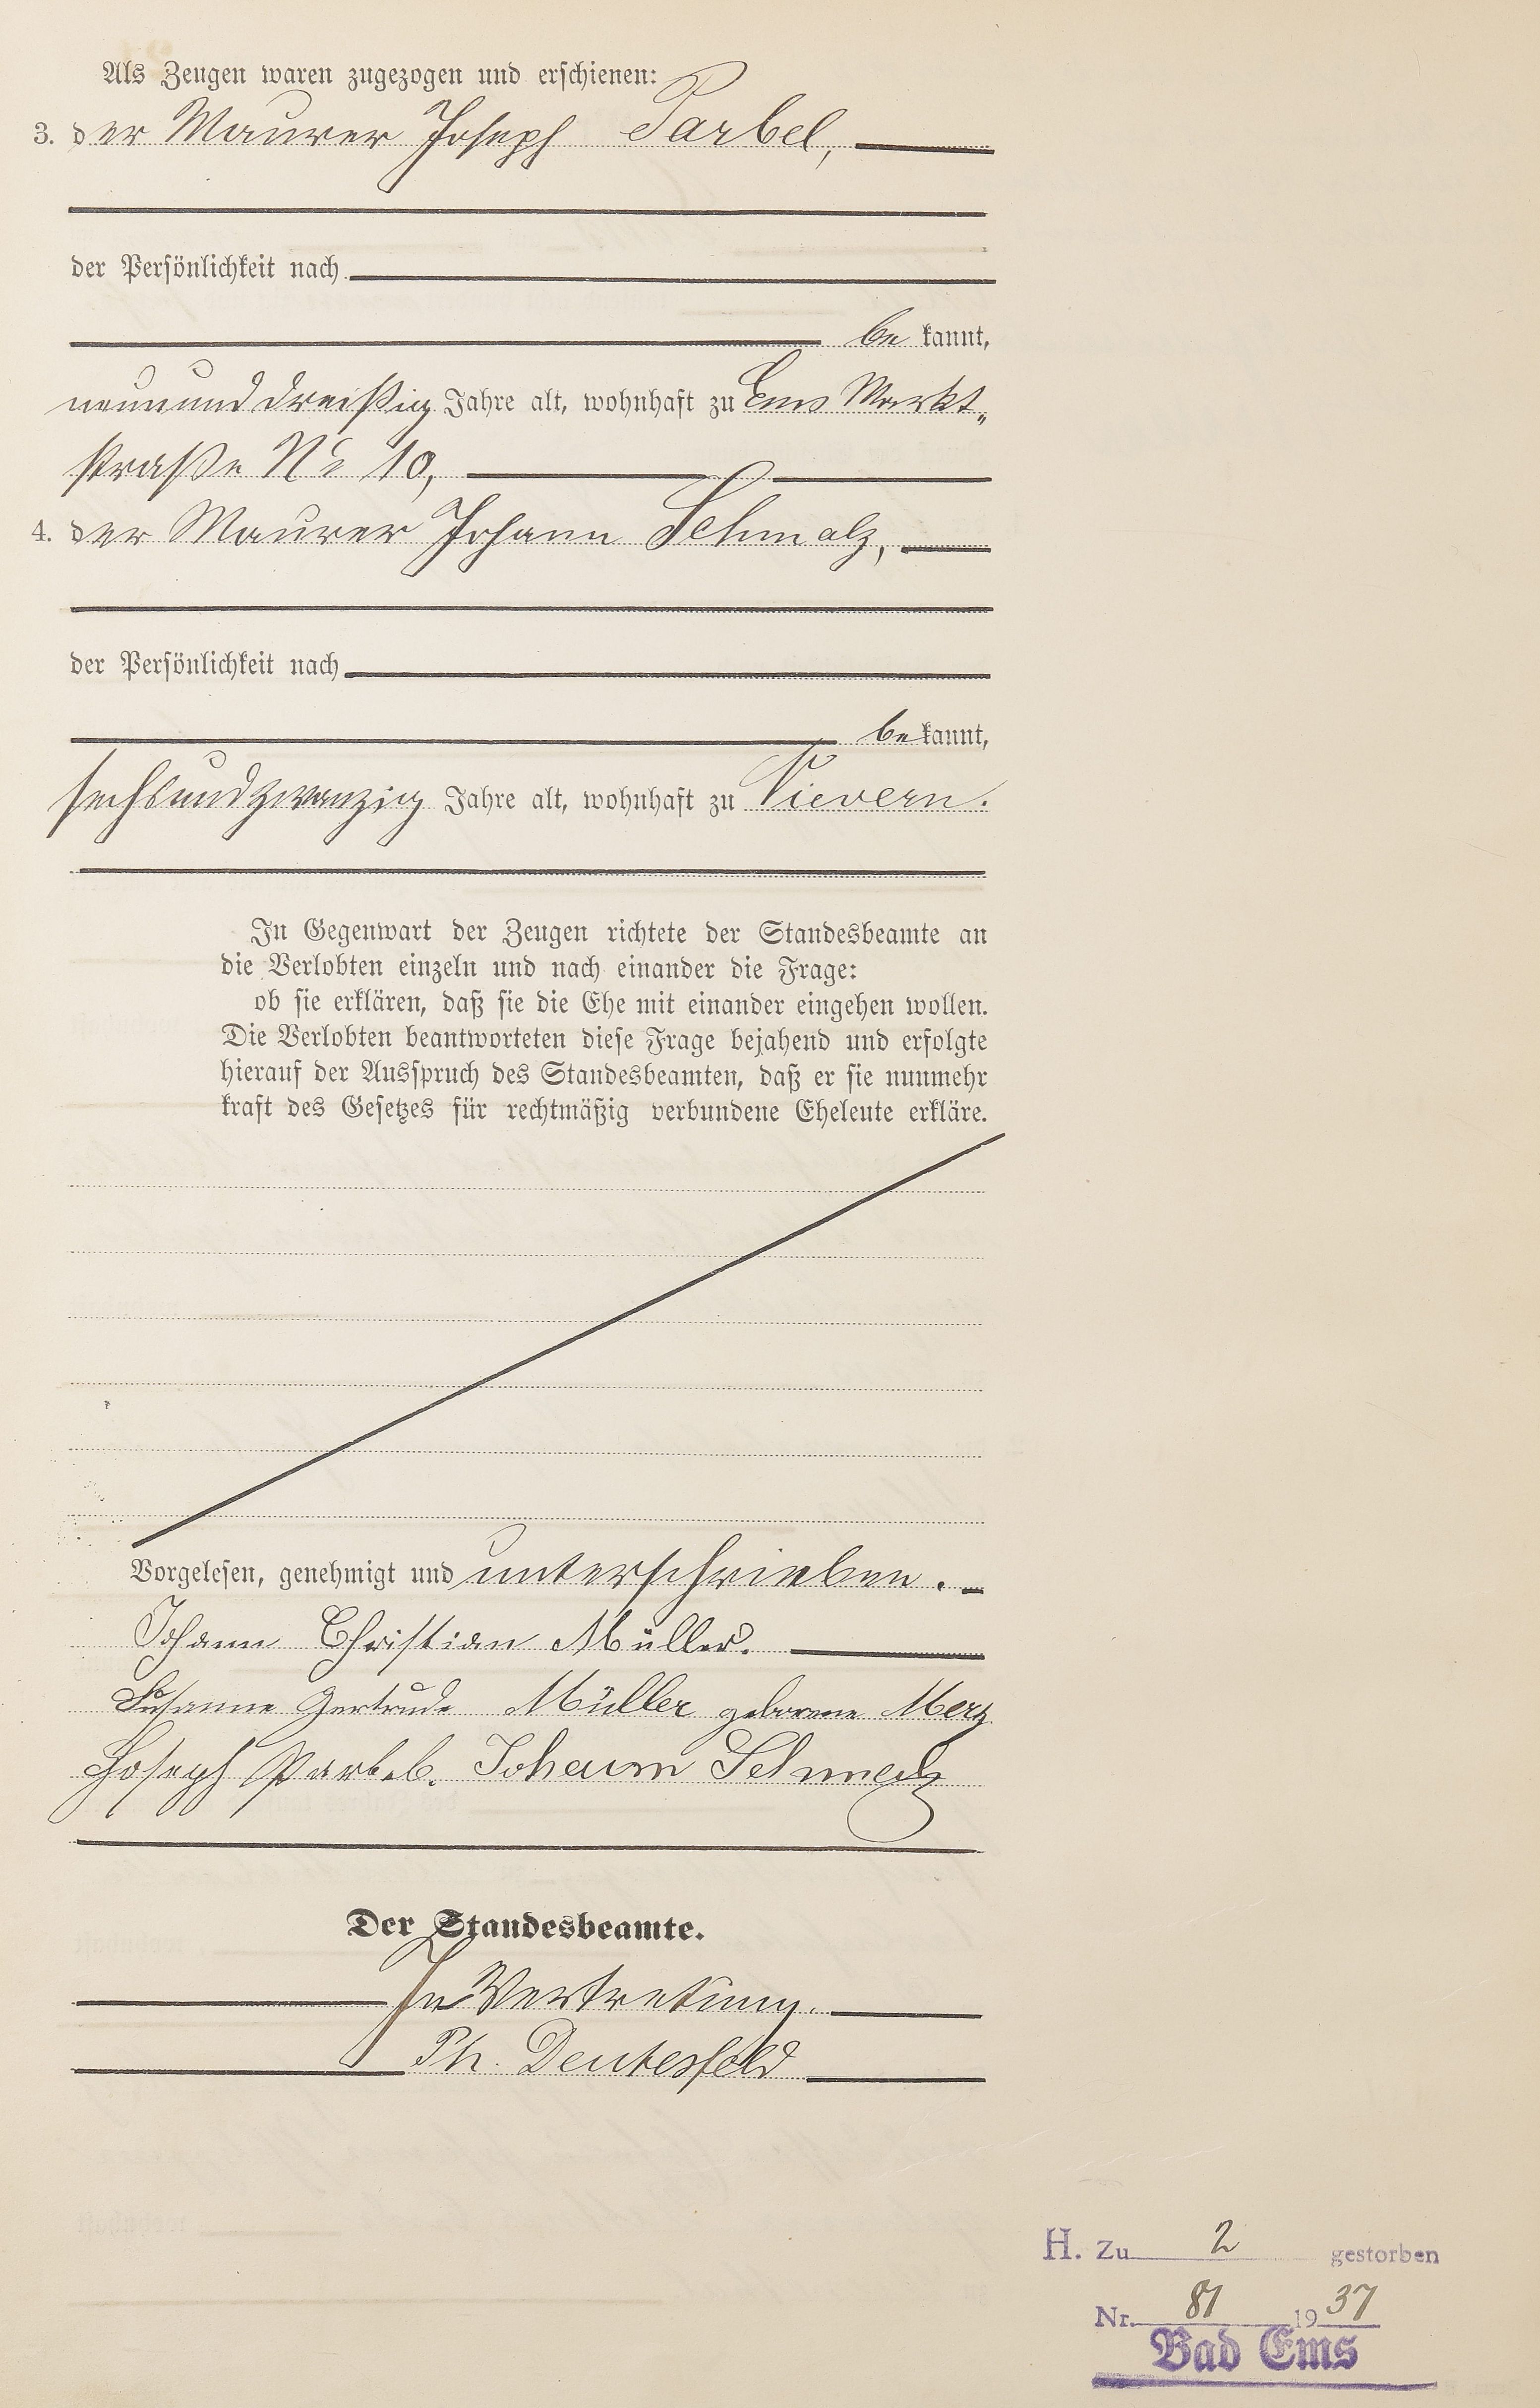 Als Zeugen waren zugezogen und erschienen:
3. der Maurer Joseph Parbel,
der Persönlichkeit nach
be kannt,
neunund dreißig Jahre alt, wohnhaft zu Ems Markt„
straße No 10,
4. der Maurer Johann Schmalz,
der Persönlichkeit nach
be kannt,
sechsundzwanzig Jahre alt, wohnhaft zu Nievern.
In Gegenwart der Zeugen richtete der Standesbeamte an
die Verlobten einzeln und nach einander die Frage:
ob sie erklären, daß sie die Ehe mit einander eingehen wollen.
Die Verlobten beantworteten diese Frage bejahend und erfolgte
hierauf der Ausspruch des Standesbeamten, daß er sie nunmehr
kraft des Gesetzes für rechtmäßig verbundene Eheleute erkläre.
Vorgelesen, genehmigt und unterschrieben.
Johann Christian Müller.
Susanne Gertrude Müller geborene Merz
Joseph Parbel. Johann Schmalz
Der Standesbeamte.
In Vertretung.
Ph. Deutesfeld
H. Zu 2 gestorben
Nr. 81 1937
Bad Ems